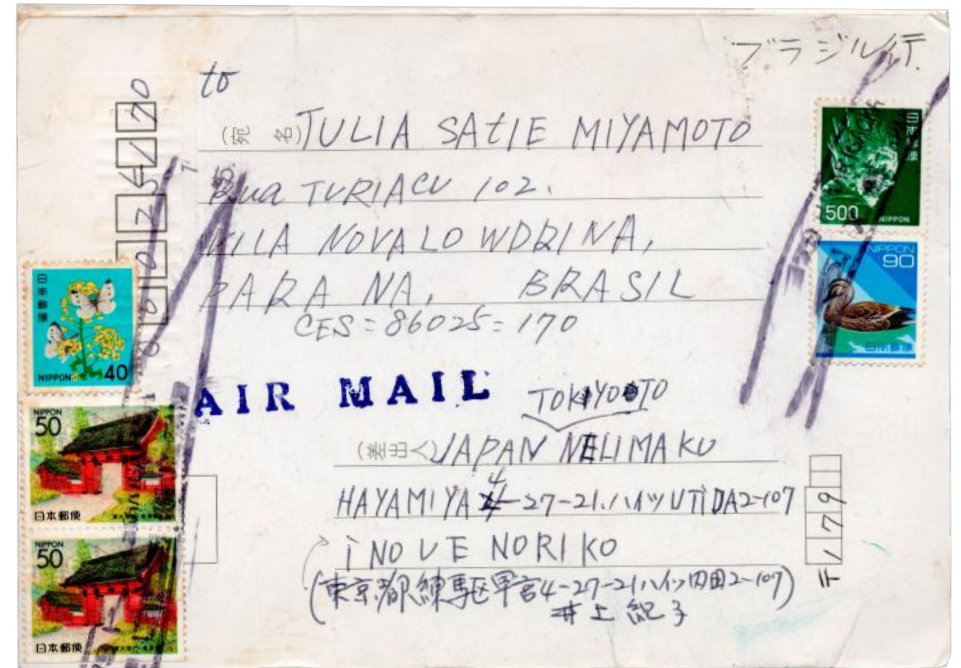 ブラジル行
to
(宛 名) JULIA SATIE MIYAMOTO
Rua TURIACU 102.
VILA NOVA LOWDRINA,
PARA NA, BRASIL
CES=86025=170
AIR MAIL
TOKIYOTO
(差出人) JAPAN NELIMAKU
HAYAMIYA 4-27-21.ハイツUTiDA2-107
iNOUE NORIKO
(東京都練馬区早宮4-27-21ハイツ内田2-107)
井上紀子
〒179
日本郵便
500 NIPPON
NIPPON
90
日本郵便
日本郵便
NIPPON 40
NIPPON
50
日本郵便
NIPPON
50
日本郵便